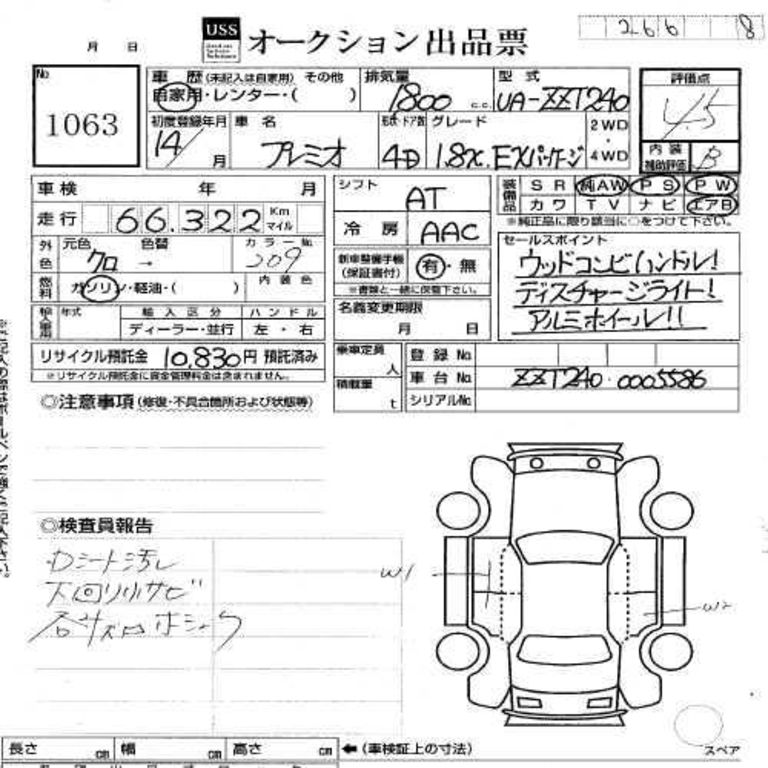 266 8
月 日
USS オークション 出品票
No 1063
車歴 (未記入は自家用) その他
自家用・レンター・( )
排気量 1800 c.c.
型式 UA-ZZT240
評価点 4.5
初度登録年月 14/ 月
車名 プレミオ
ドア数 4D
グレード 1.8X.EXパッケージ
2WD・4WD
内装補助評価 B
車検 年 月
走行 66,322 Km マイル
外色 元色 クロ 色替 → カラーNo. 209
燃料 ガソリン・軽油・( ) 内装色
輸入車用 年式 輸入区分 ハンドル
ディーラー・並行 左・右
リサイクル預託金 10,830円 預託済み
※リサイクル預託金に資金管理料金は含まれません。
シフト AT
冷房 AAC
新車整備手帳(保証書付) 有・無
※書類と一緒に保管下さい。
名義変更期限
月 日
装備品 SR 純AW PS PW
カワ TV ナビ エアB
※純正品に限り該当に○をつけて下さい。
セールスポイント
ウッドコンビハンドル!
ディスチャージライト!
アルミホイール!!
乗車定員 人
積載量 t
登録No.
車台No. ZZT240-0005586
シリアルNo.
◎注意事項(修復・不具合箇所および状態等)
◎検査員報告
Dシート汚レ
下回リ小サビ
W1
W2
スペア
長さ cm 幅 cm 高さ cm ←(車検証上の寸法)